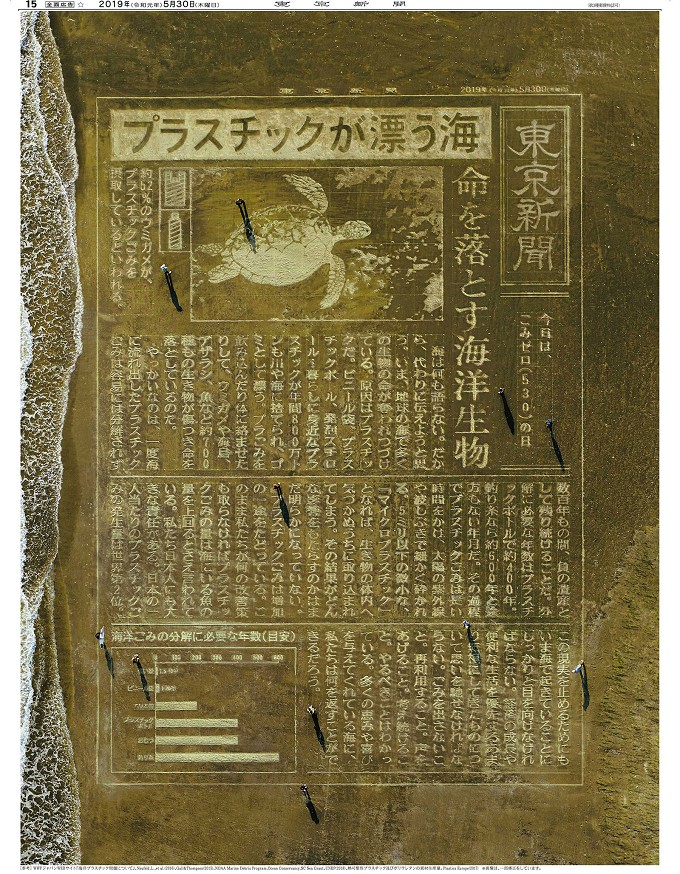 15 全面広告 ☆ 2019年(令和元年)5月30日(木曜日) 東京新聞
東京新聞 2019年(令和元年)5月30日(木曜日)
東京新聞
プラスチックが漂う海
命を落とす海洋生物
今日は、
ごみゼロ(530)の日
約52%のウミガメが、
プラスチックごみを
摂取しているといわれる。
海は何も語らない。だか
ら、代わりに伝えようと思
う。いま、地球の海で多く
の生物の命が奪われつづけ
ている。原因はプラスチッ
クだ。ビニール袋、プラス
チックボトル、発泡スチロ
ール…暮らしに身近なプラ
スチックが年間800万ト
ンも川や海に捨てられ、ゴ
ミとして漂う。プラごみを
飲み込んだり体に絡ませた
りして、ウミガメや海鳥、
アザラシ、魚など約700
種もの生き物が傷つき命を
落としているのだ。
やっかいなのは、一度海
に流れ出したプラスチック
ごみは容易には分解されず、
数百年もの間、負の遺産と
して残り続けることだ。分
解に必要な年数はプラスチ
ックボトルで約400年、
釣り糸なら約600年と途
方もない年月だ。その過程
でプラスチックごみは長い
時間をかけ、太陽の紫外線
や波しぶきで細かく砕かれ
る。5ミリ以下の微小な、
「マイクロプラスチック」
となれば、生き物の体内へ
気づかぬうちに取り込まれ
てしまう。その結果がどん
な影響をもたらすのかはま
だ明らかになっていない。
プラスチックごみは増加
の一途をたどっている。こ
のまま私たちが何の改善策
も取らなければプラスチッ
クごみの量は海にいる魚の
量を上回るとさえ言われて
いる。私たち日本人にも大
きな責任がある。日本の一
人当たりのプラスチックご
みの発生量は世界第2位。
この現実を止めるためにも
いま海で起きていることに
しっかりと目を向けなけれ
ばならない。経済の成長や
便利な生活を優先するあま
り
にしてきたものにつ
いて思いを馳せなければな
らない。ごみを出さないこ
と。再利用すること。声を
あげること。考え続けるこ
と。やるべきことはわかっ
ている。多くの恵みや喜び
を与えてくれている海に、
私たちは何を返すことがで
きるだろう。
海洋ごみの分解に必要な年数(目安)
0 100 200 300 400 500 600
ビニール袋
プラスチック
ボトル
おむつ
釣り糸